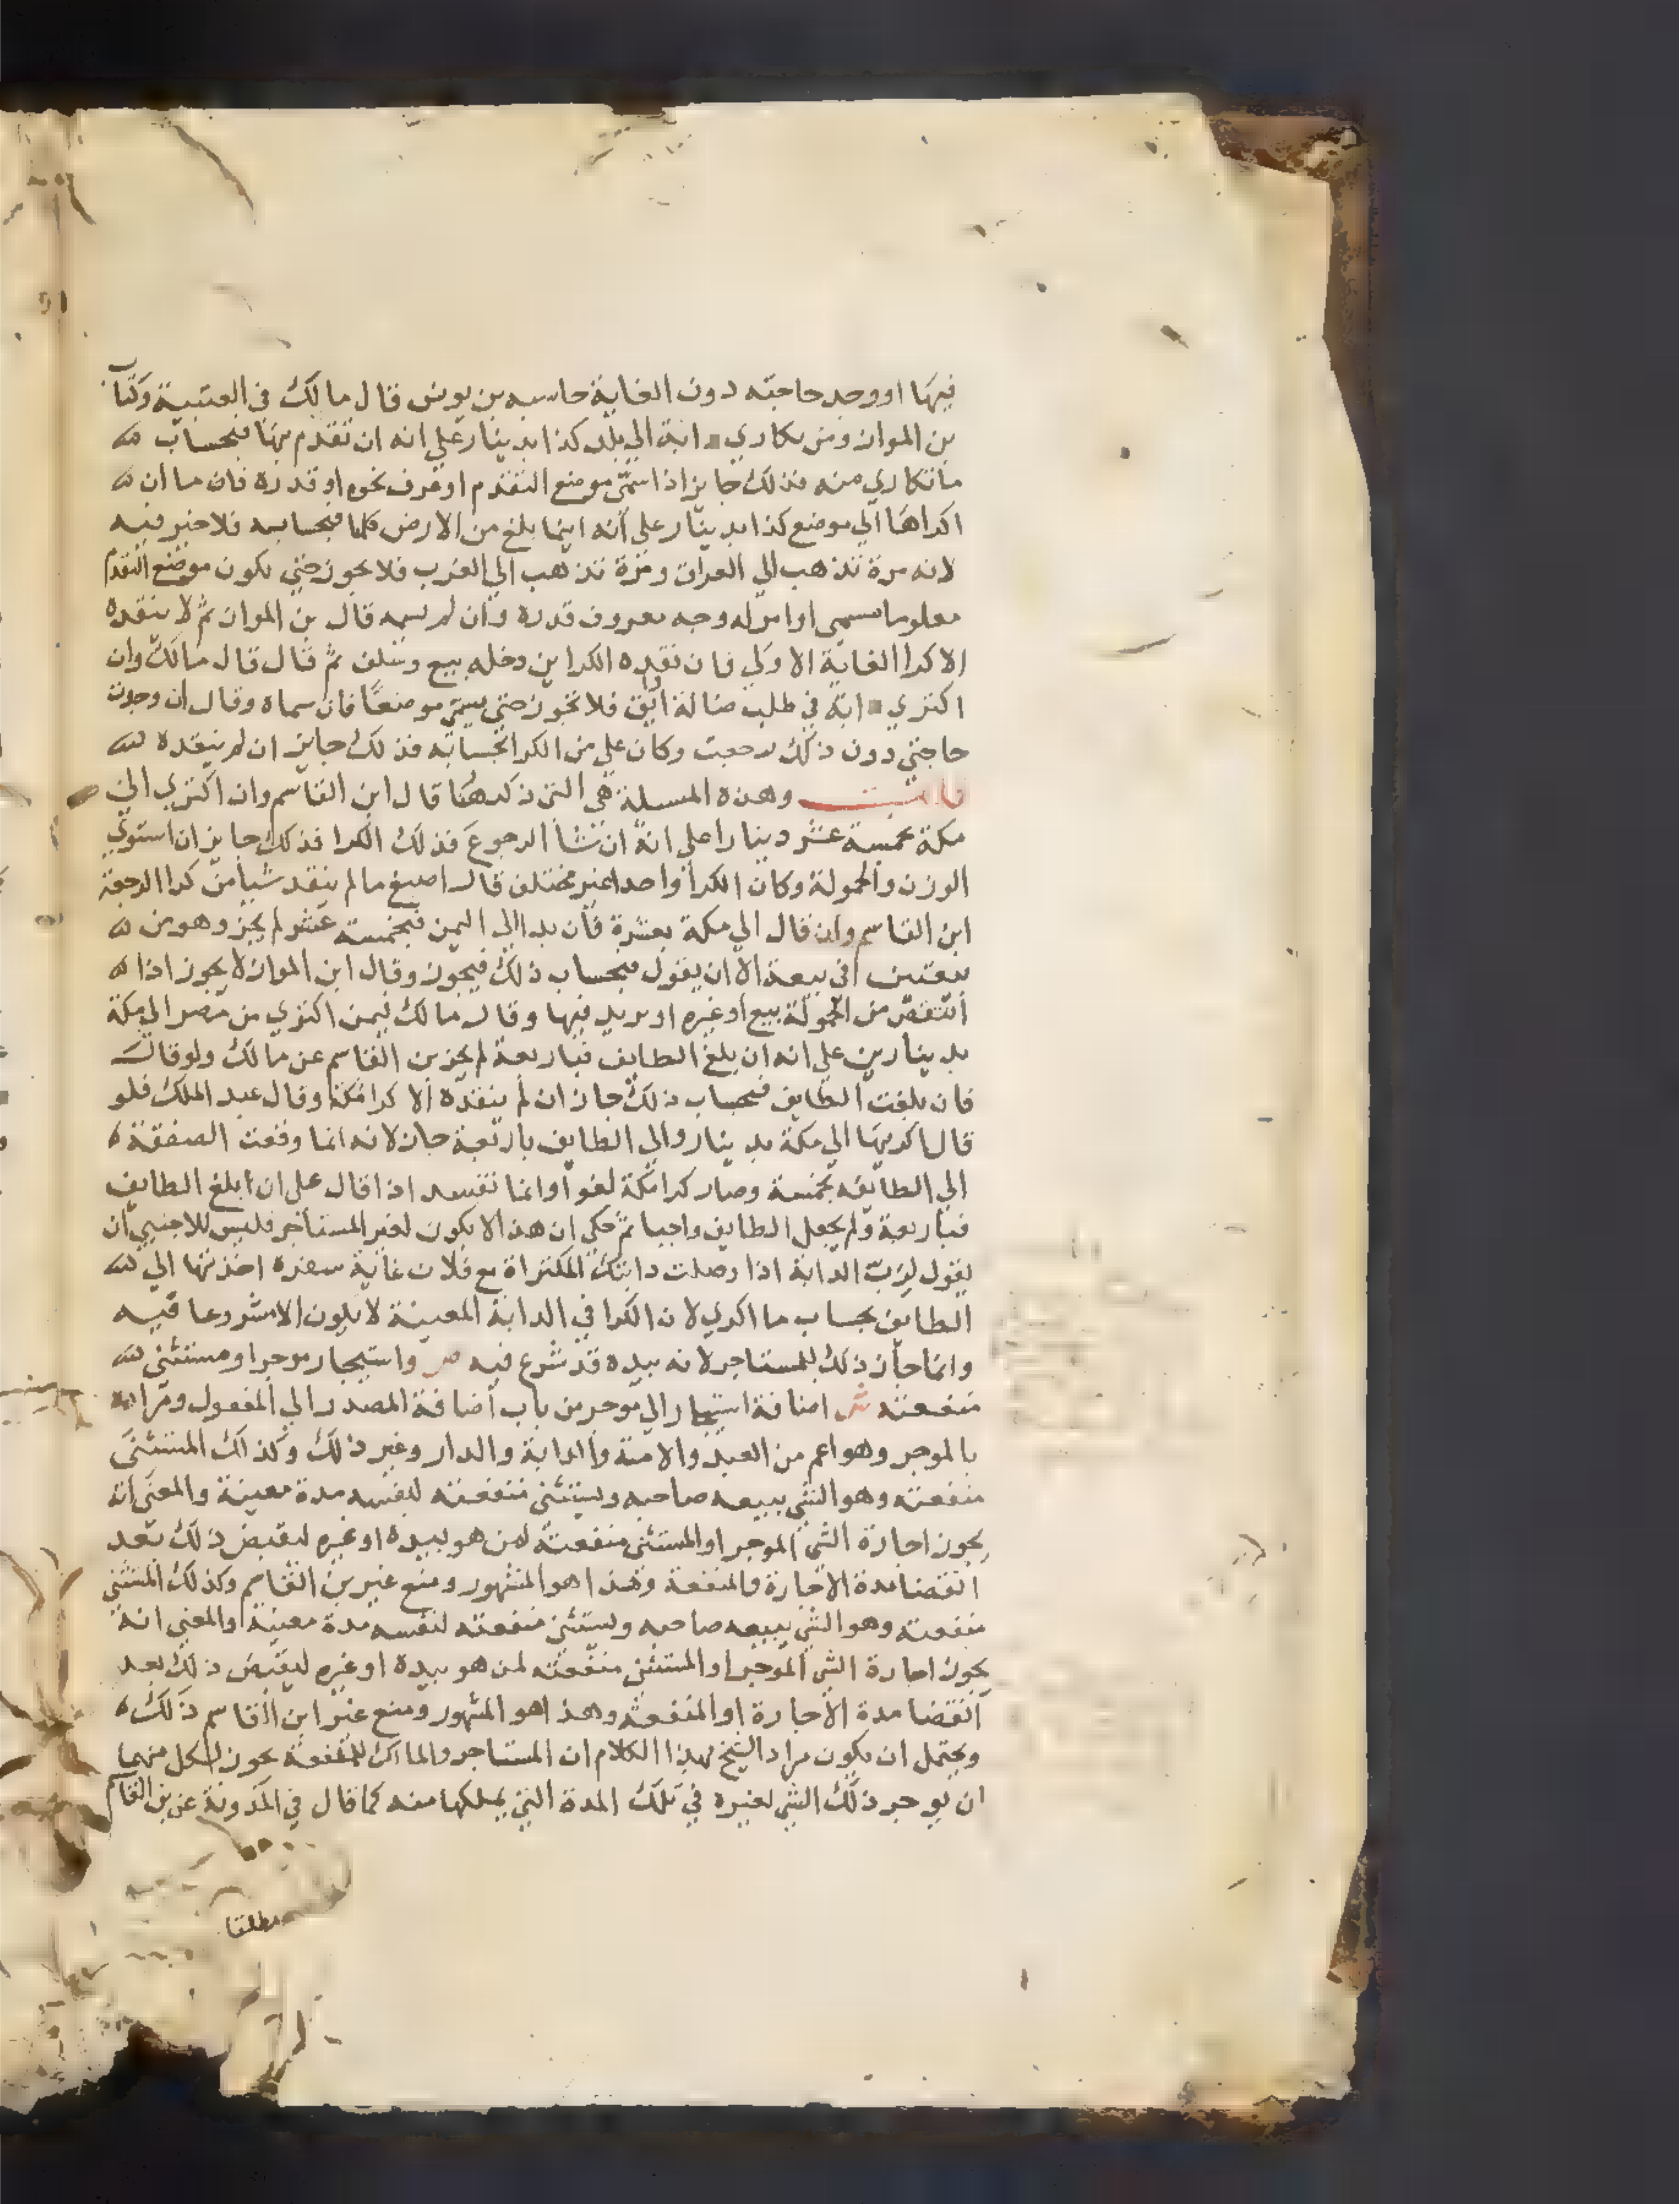 فيها او وجد حاجته دون الغاية حاسبه بن يونس قال مالك في العتبية وكتاب
بن المواز ومن تكاري دابة الي بلد كذا بدينار علي انه ان تقدم بها فبحساب
ما تكاري منه فذلك جايز اذا سمي موضع التقدم او عرف نحوه او قدره فان ما ان
اكراها الي موضع كذا بدينار علي أنه اينما بلغ من الارض كلها فبحسابه فلا خير فيه
لانه مرة تذهب الي العراق ومرة تذهب الي الغرب فلا يجوز حتي يكون موضع التقدم
معلوما مسمي او امر له وجه معروف قدره وان لم يسمه قال بن المواز ثم لا ينقده
الا كرا الغاية الاولي فان نقده الكراين دخله بيع وسلف ثم قال قال مالك وان
اكتري دابة في طلب ضالة او ابق فلا تجوز حتي يسمي موضعا فان سماه وقال ان وجدت
حاجتي دون ذلك رجعت وكان علي من الكرا بحسابه فذلك جايز ان لم ينقده
وهذه المسلة هي التي ذكرها قال ابن القاسم وان اكتري الي
مكة بخمسة عشر دينارا علي انه ان شا الرجوع فذلك الكرا فذلك جايز ان استوي
الوزن والحمولة وكان الكرا واحدا غير مختلف قال اصبغ ما لم ينقد شيا من كرا الرجعة
ابن القاسم وان قال الي مكة بعشرة فان بدا الي اليمن فبخمسة عشر لم يجز وهو من
بيعتين في بيعة الا ان يقول فبحساب ذلك فيجوز وقال ابن المواز لا يجوز اذا
انتقض من الحمولة بيع او غيره او يزيد فيها وقال مالك فيمن اكتري من مصر الي مكة
بدينارين علي انه ان بلغ الطايف فباربعة لم يجز بن القاسم عن مالك ولو قال
فان بلغت الطايف فبحساب ذلك جاز ان لم ينقده الا كرا مكة وقال عبد الملك فلو
قال اكريها الي مكة بدينار والي الطايف باربعة جاز لانه انما وقعت الصفقة
الي الطايف بخمسة وصار كرا مكة لغوا وانما تفسد اذا قال علي ان ابلغ الطايف
فباربعة ولم يجعل الطايف واجبا ثم حكي ان هذا لا يكون لغير المستاجر فليس للاجنبي ان
يقول لرب الدابة اذا وصلت دابتك المكتراة مع فلان غاية سفره اخذتها الي
الطايف بحساب ما اكري لان الكرا في الدابة المعينة لا يكون الا مشروعا فيه
وانما جاز ذلك للمستاجر لانه بيده قد شرع فيه ص واستيجار موجر او مستثني
منفعته ش اضافة استيجار الي موجر من باب اضافة المصدر الي المفعول ومراده
بالموجر وهو اعم من العبد والامة والدابة والدار وغير ذلك وكذلك المستثني
منفعته وهو الشي يبيعه صاحبه ويستثني منفعته لنفسه مدة معينة والمعني انه
يجوز اجارة الشي الموجر او المستثني منفعته لمن هو بيده او غيره ليقبض ذلك بعد
انقضا مدة الاجارة والمنفعة وهذا هو المشهور ومنع غير بن القاسم وكذلك المستثني
منفعته وهو الشي يبيعه صاحبه ويستثني منفعته لنفسه مدة معينة والمعني انه
يجوز اجارة الشي الموجر او المستثني منفعته لمن هو بيده او غيره ليقبض ذلك بعد
انقضا مدة الاجارة او المنفعة وهذا هو المشهور ومنع غير ابن القاسم ذلك
ويحتمل ان يكون مراد الشيخ بهذا الكلام ان المستاجر والمالك للمنفعة يجوز لكل منهما
ان يوجر ذلك الشي لغيره في تلك المدة التي يملكها منه كما قال في المدونة عن بن القاسم
مطلقا